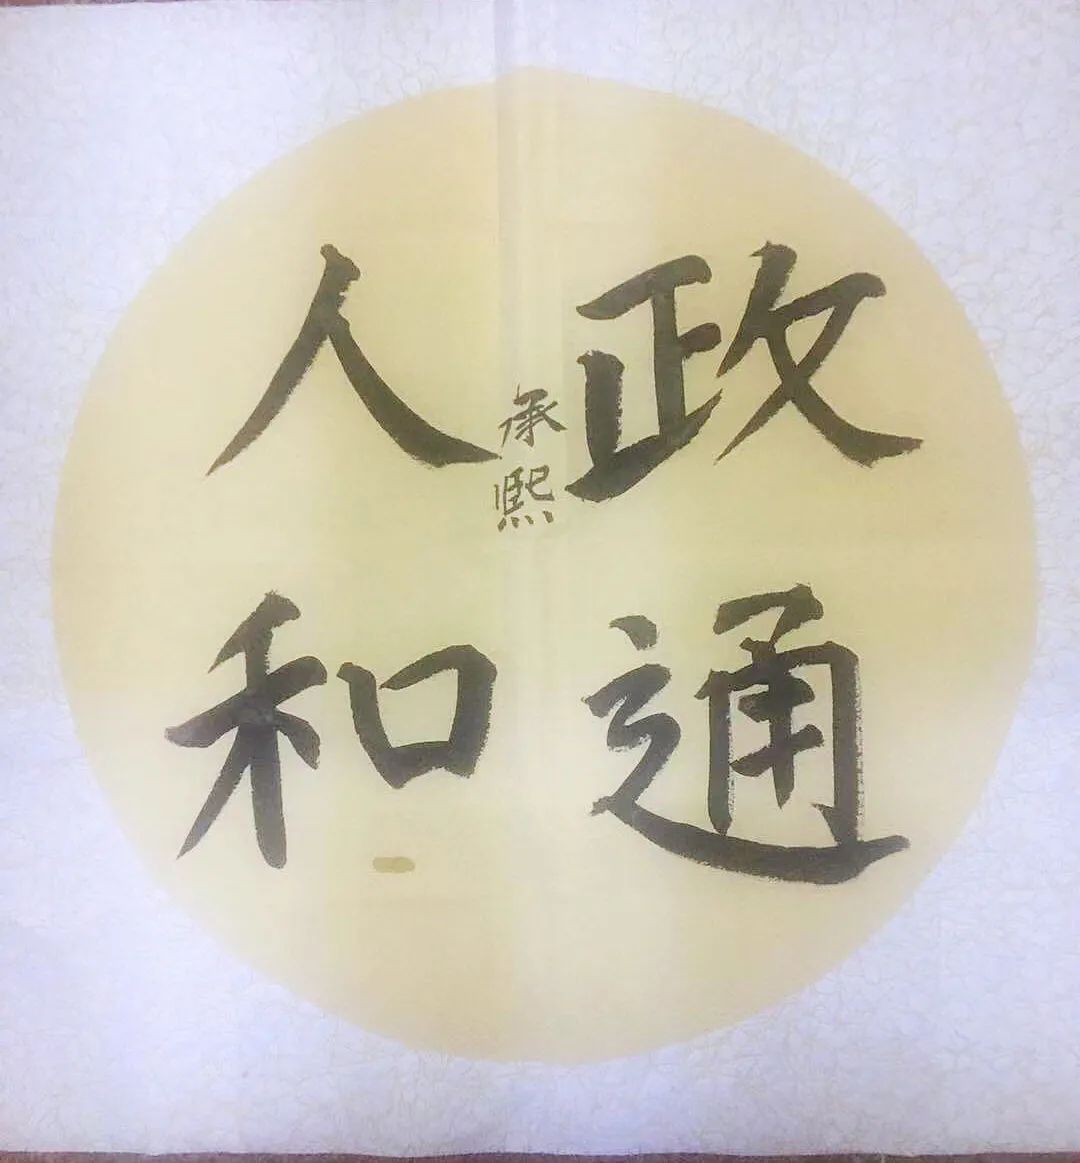 政通
人和
承熙